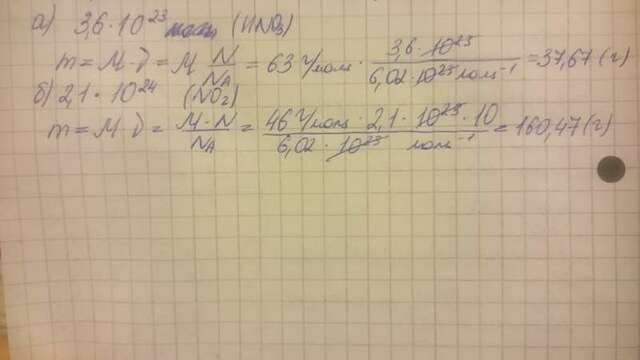 а) 3,6·10²³ молек (HNO₃)
m = M·ν = M N/Nₐ = 63 г/моль · 3,6·10²³/6,02·10²³ моль⁻¹ = 37,67 (г)
б) 2,1·10²⁴ (NO₂)
m = M·ν = M·N/Nₐ = 46 г/моль · 2,1·10²³·10/6,02·10²³ моль⁻¹ = 160,47 (г)